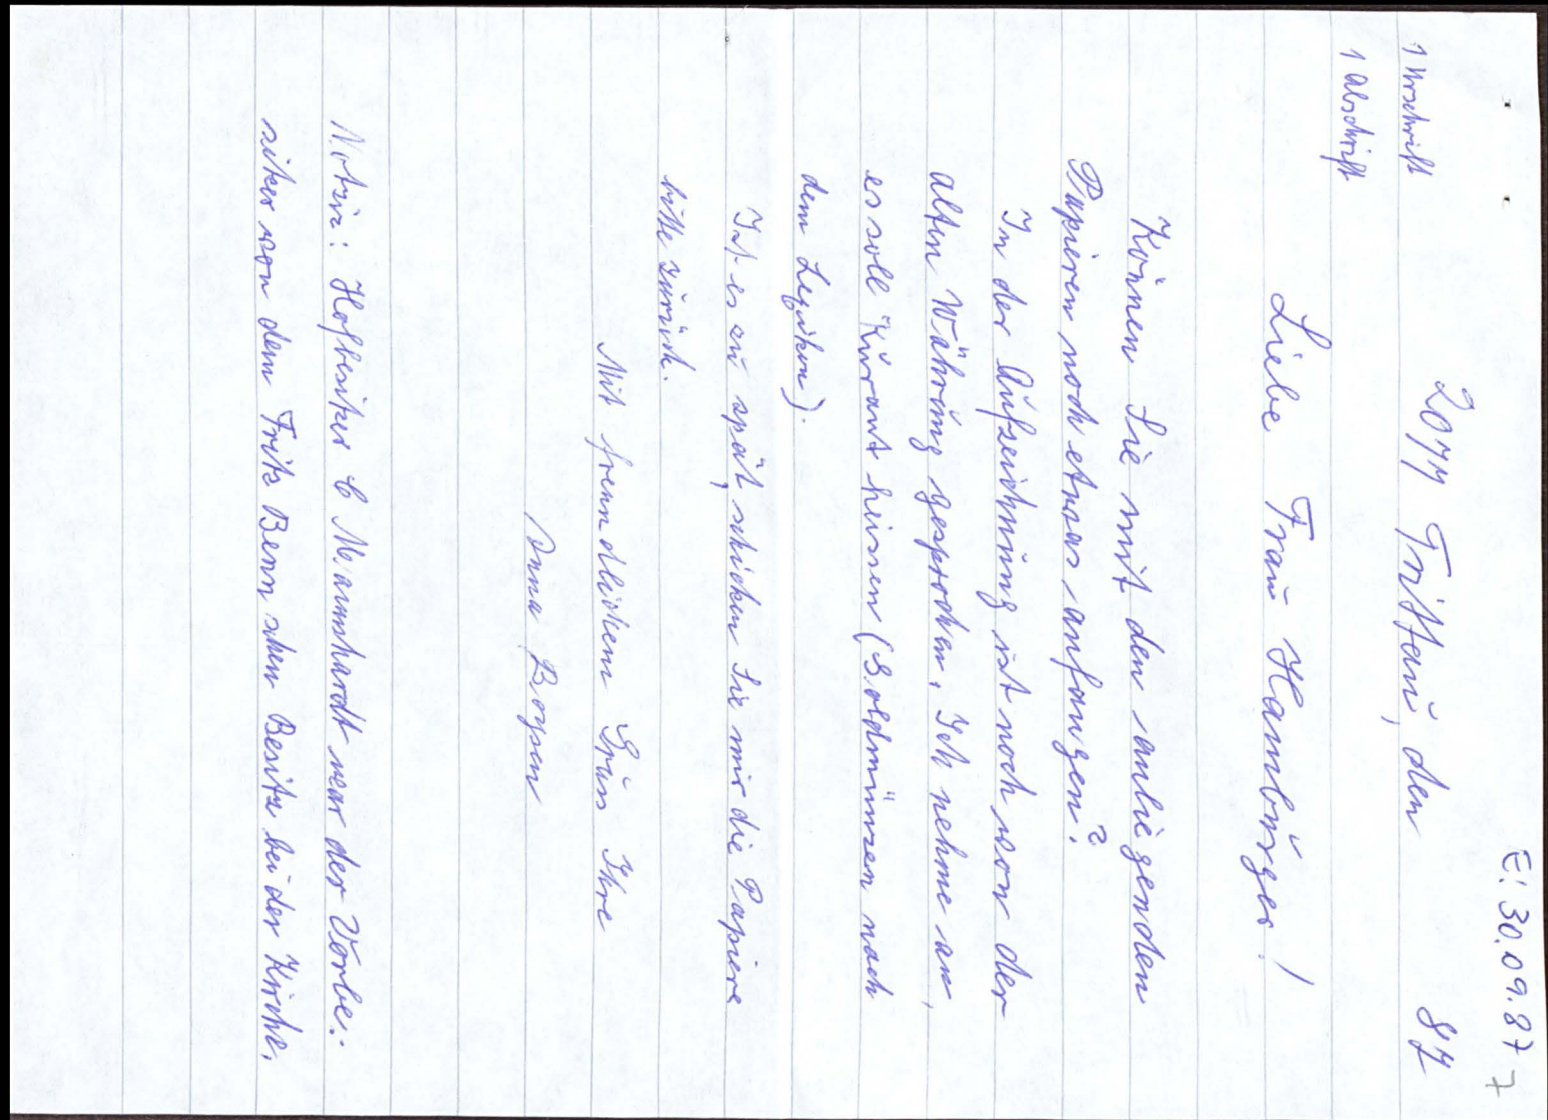 E: 30.09.87
7
2077 Trittau, den 87
1 Urschrift
1 Abschrift
Liebe Frau Hambürger!
Können Sie mit den anliegenden
Papieren noch etwas anfangen?
In der Aufzeichnung ist noch von der
alten Währung gesprochen. Ich nehme an,
es soll Kurant heissen (Goldmünzen nach
dem Lexikon).
Ist es zu spät, schicken Sie mir die Papiere
bitte zurück.
Mit freundlichem Grüss Ihre
Anna Boysen
Notiz: Hofbesitzer C Mannshardt war der Vorbe:
sitzer von dem Fritz Bennschen Besitz bei der Kirche.